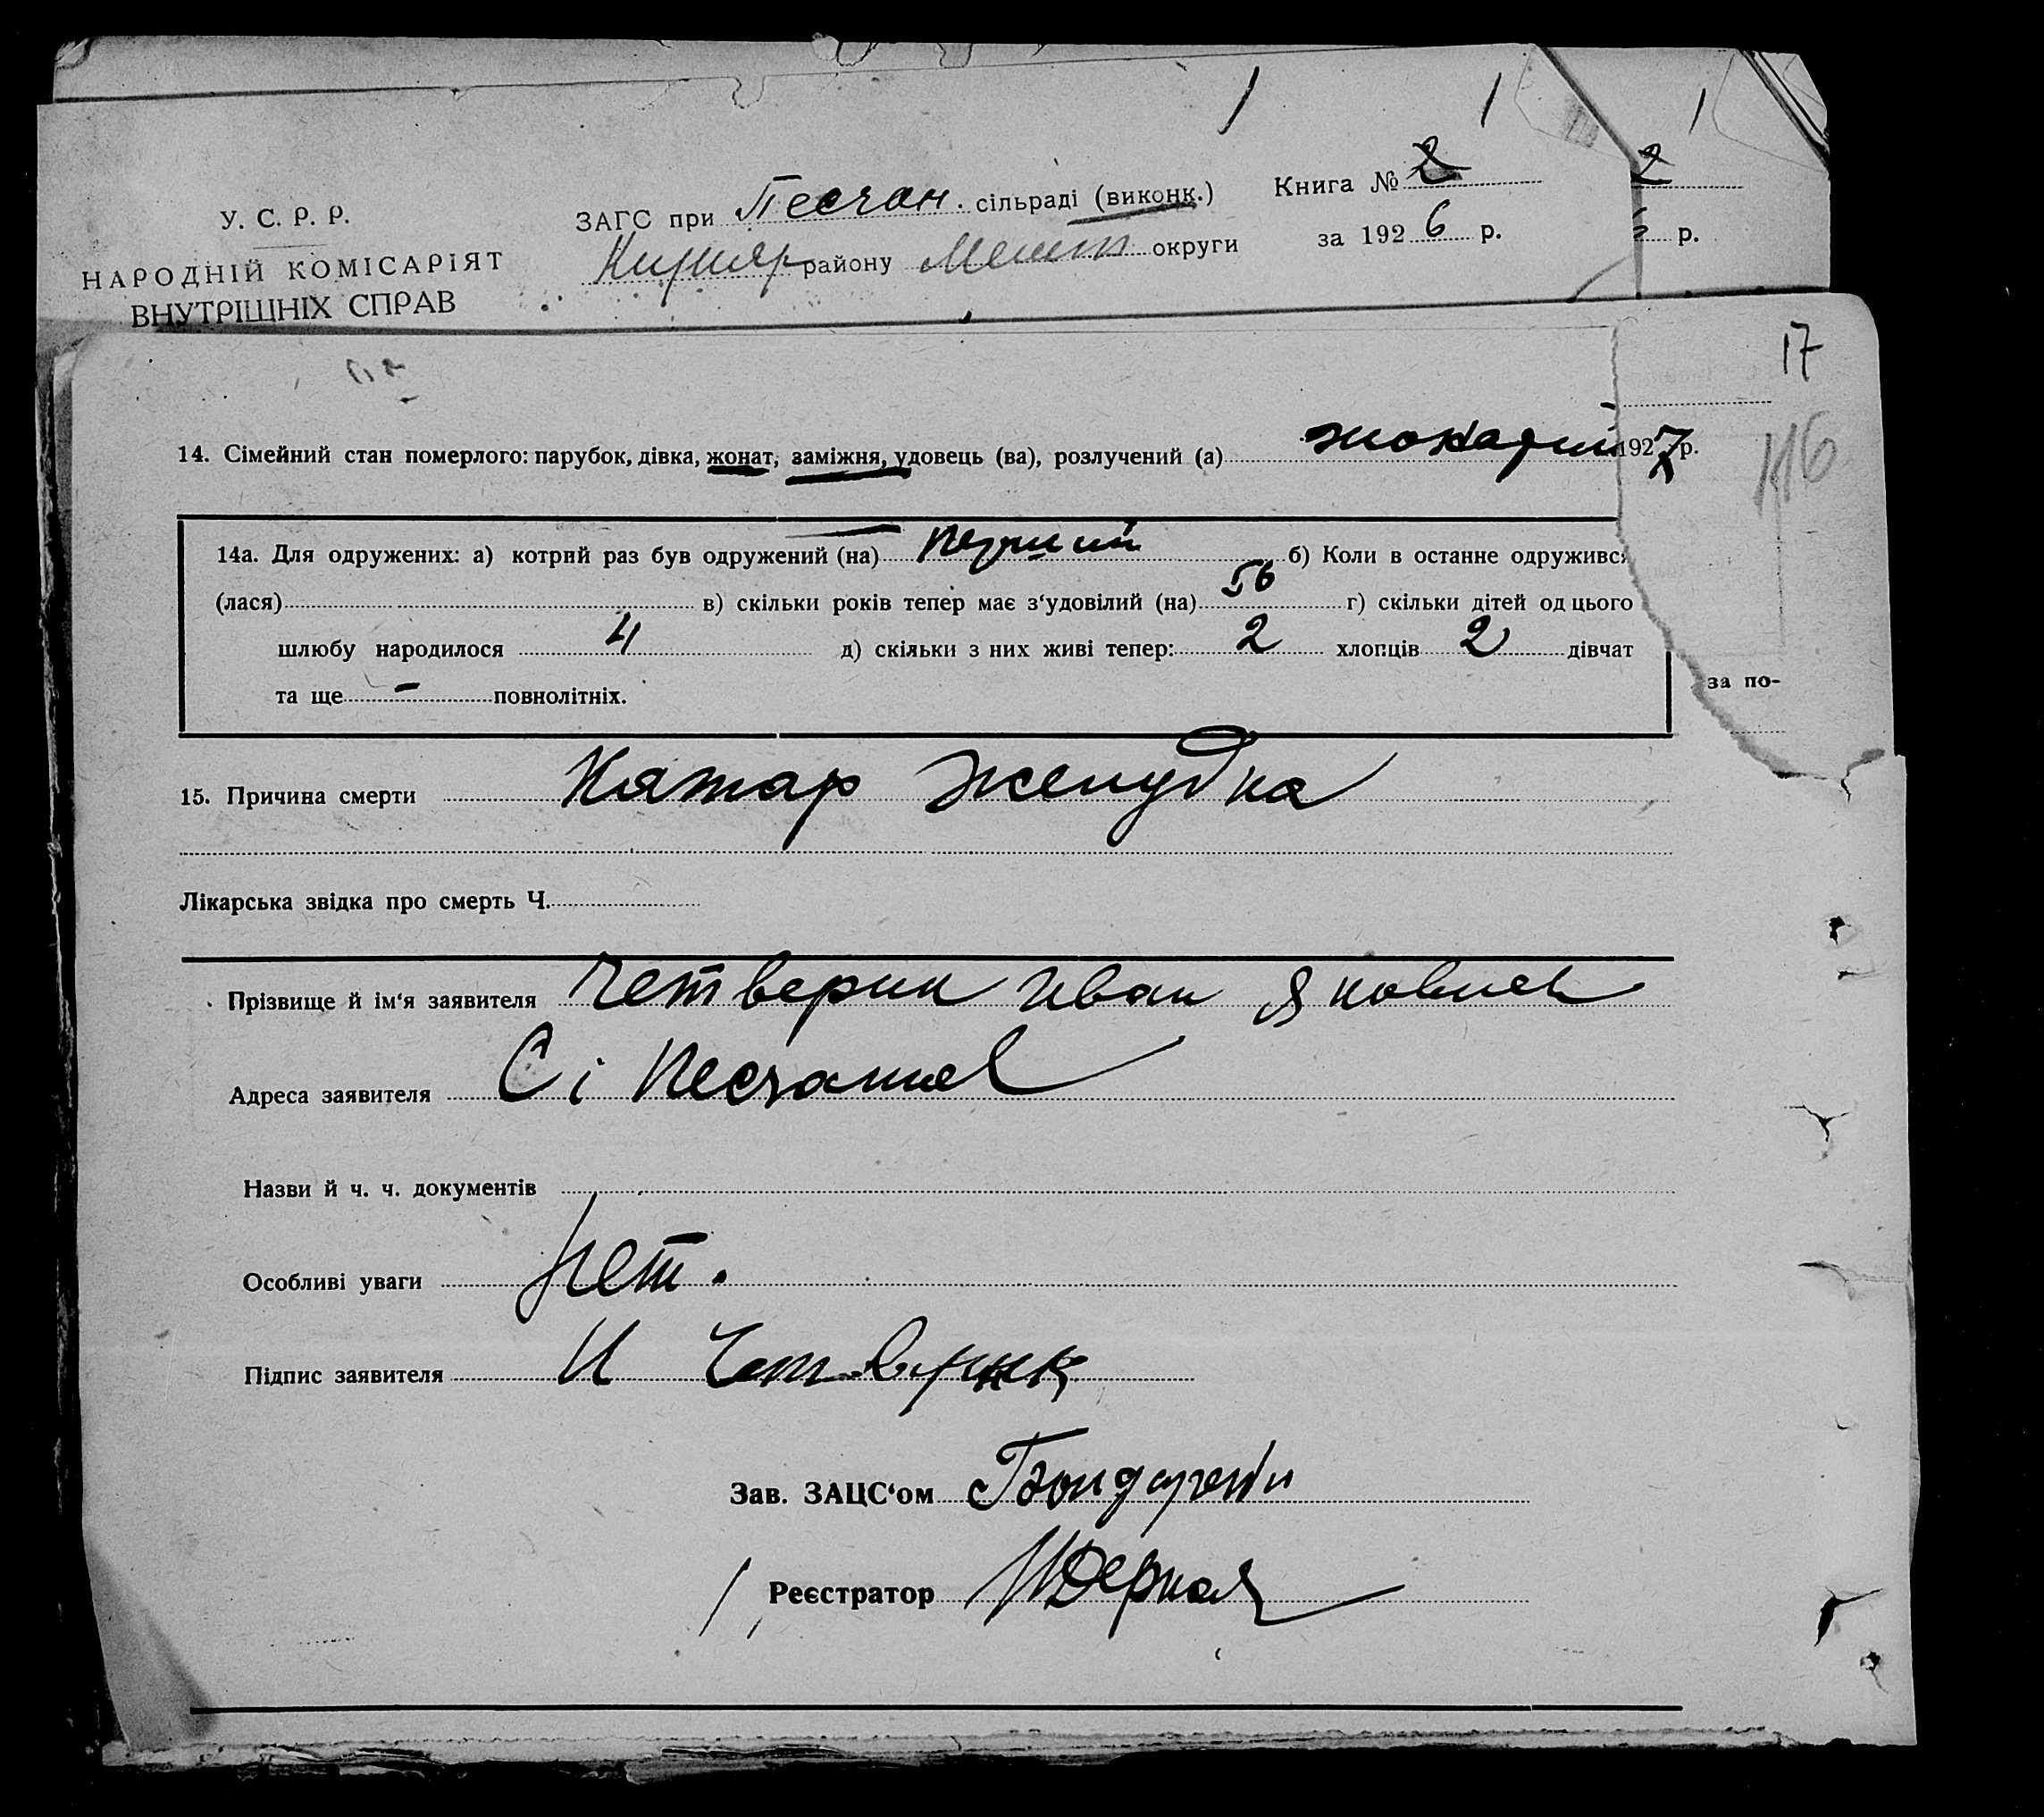 У. С. Р. Р.
НАРОДНІЙ КОМІСАРІЯТ
ВНУТРІШНІХ СПРАВ
ЗАГС при Песчан. сільраді (виконк.)
району округи
Книга № 2
за 1926 р.
2
р.
17
14. Сімейний стан померлого: парубок, дівка, жонат, заміжня, удовець (ва), розлучений (а)
1927 р.
14а. Для одружених: а) котрий раз був одружений (на) первий б) Коли в останне одружився
(лася) в) скільки років тепер має з‘удовілий (на) 56 г) скільки дітей од цього
шлюбу народилося 4 д) скільки з них живі тепер: 2 хлопців 2 дівчат
та ще - повнолітніх.
за по-
15. Причина смерти Катар желудка
Лікарська звідка про смерть Ч.
Прізвище й ім‘я заявителя Четверик Иван Яковлев
Адреса заявителя
Назви й ч. ч. документів
Особливі уваги Нет.
Підпис заявителя И Четверик
Зав. ЗАЦС‘ом
Реєстратор